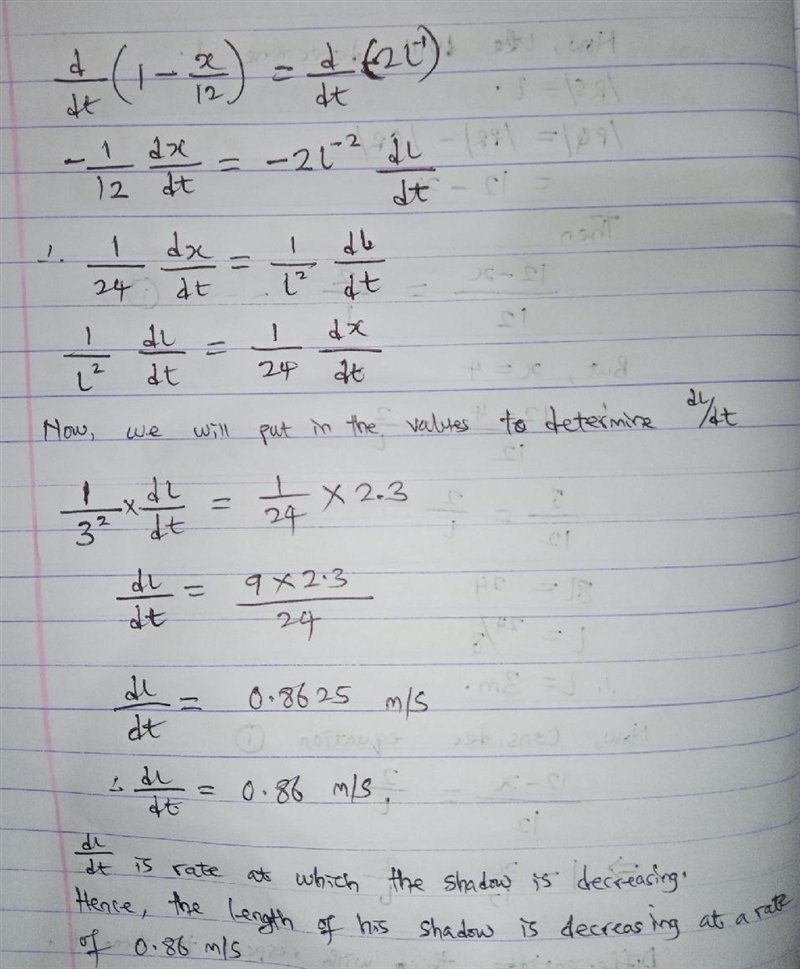 d/dt (1 - x/12) = d/dt (2L⁻¹)
-1/12 dx/dt = -2L⁻² dL/dt
∴ 1/24 dx/dt = 1/L² dL/dt
1/L² dL/dt = 1/24 dx/dt
Now, we will put in the values to determine dL/dt
1/3² × dL/dt = 1/24 × 2.3
dL/dt = 9 × 2.3 / 24
dL/dt = 0.8625 m/s
∴ dL/dt = 0.86 m/s,
dL/dt is rate at which the shadow is decreasing.
Hence, the length of his shadow is decreasing at a rate
of 0.86 m/s